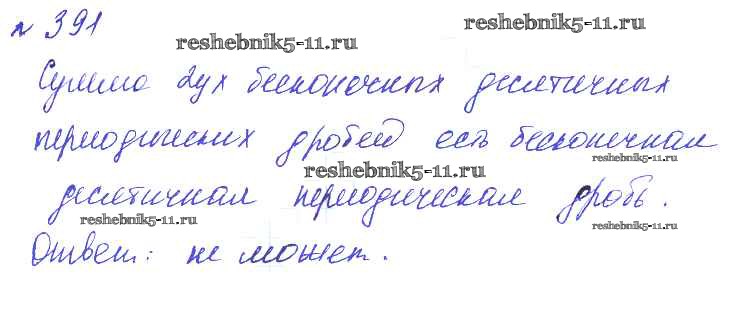 № 391
reshebnik5-11.ru
reshebnik5-11.ru
Сумма двух бесконечных десятичных
периодических дробей есть бесконечная
reshebnik5-11.ru
reshebnik5-11.ru
десятичная периодическая дробь.
reshebnik5-11.ru
reshebnik5-11.ru
Ответ: не может.